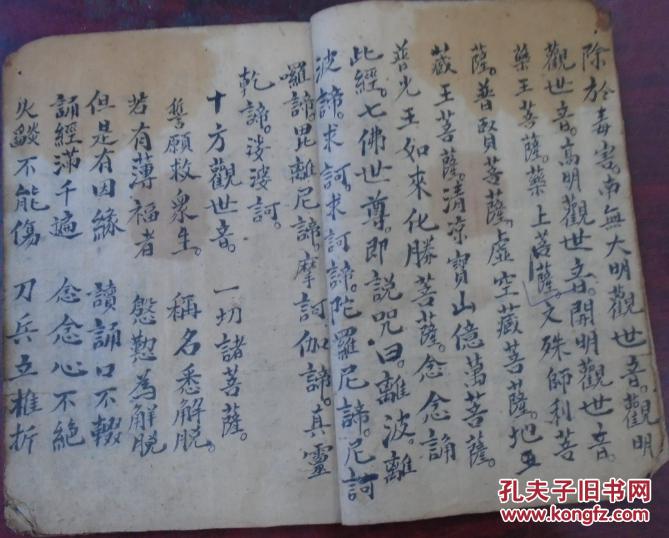 除於毒害。南無大明觀世音。觀明
觀世音。高明觀世音。開明觀世音。
藥王菩薩。藥上菩薩。文殊師利菩
薩。普賢菩薩。虛空藏菩薩。地
藏王菩薩。清凉寶山億萬菩薩。
普光王如來化勝菩薩。念念誦
此經。七佛世尊。即説咒曰。離波。離
波諦。求訶。求訶諦。陀羅尼諦。尼訶
囉諦。毘離尼諦。摩訶伽諦。真靈
乾諦。娑婆訶。
十方觀世音。一切諸菩薩。
誓願救衆生。稱名悉解脱。
若有薄福者 慇懃為解脱
但是有因緣 讀誦口不輟
誦經滿千遍 念念心不絶
火燄不能傷 刀兵立摧折
孔夫子旧书网
www.kongfz.com